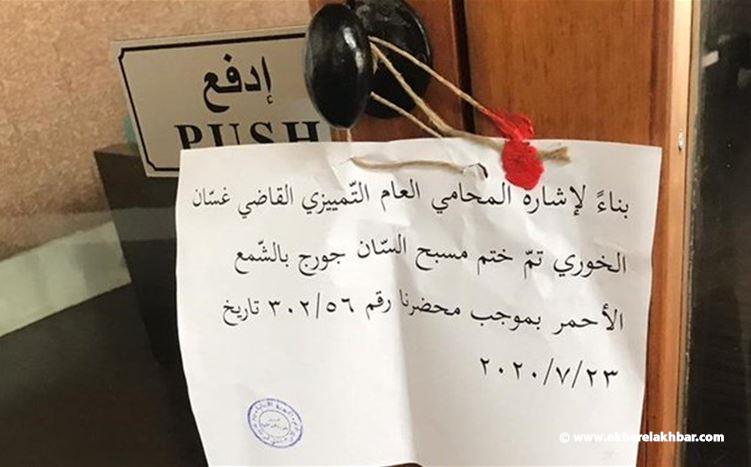 إدفع
PUSH
بناءً لإشارة المحامي العام التّمييزي القاضي غسّان
الخوري تمّ ختم مسبح السّان جورج بالشّمع
الأحمر بموجب محضرنا رقم ٣٠٢/٥٦ تاريخ
٢٠٢٠/٧/٢٣
© www.ekherelakhbar.com